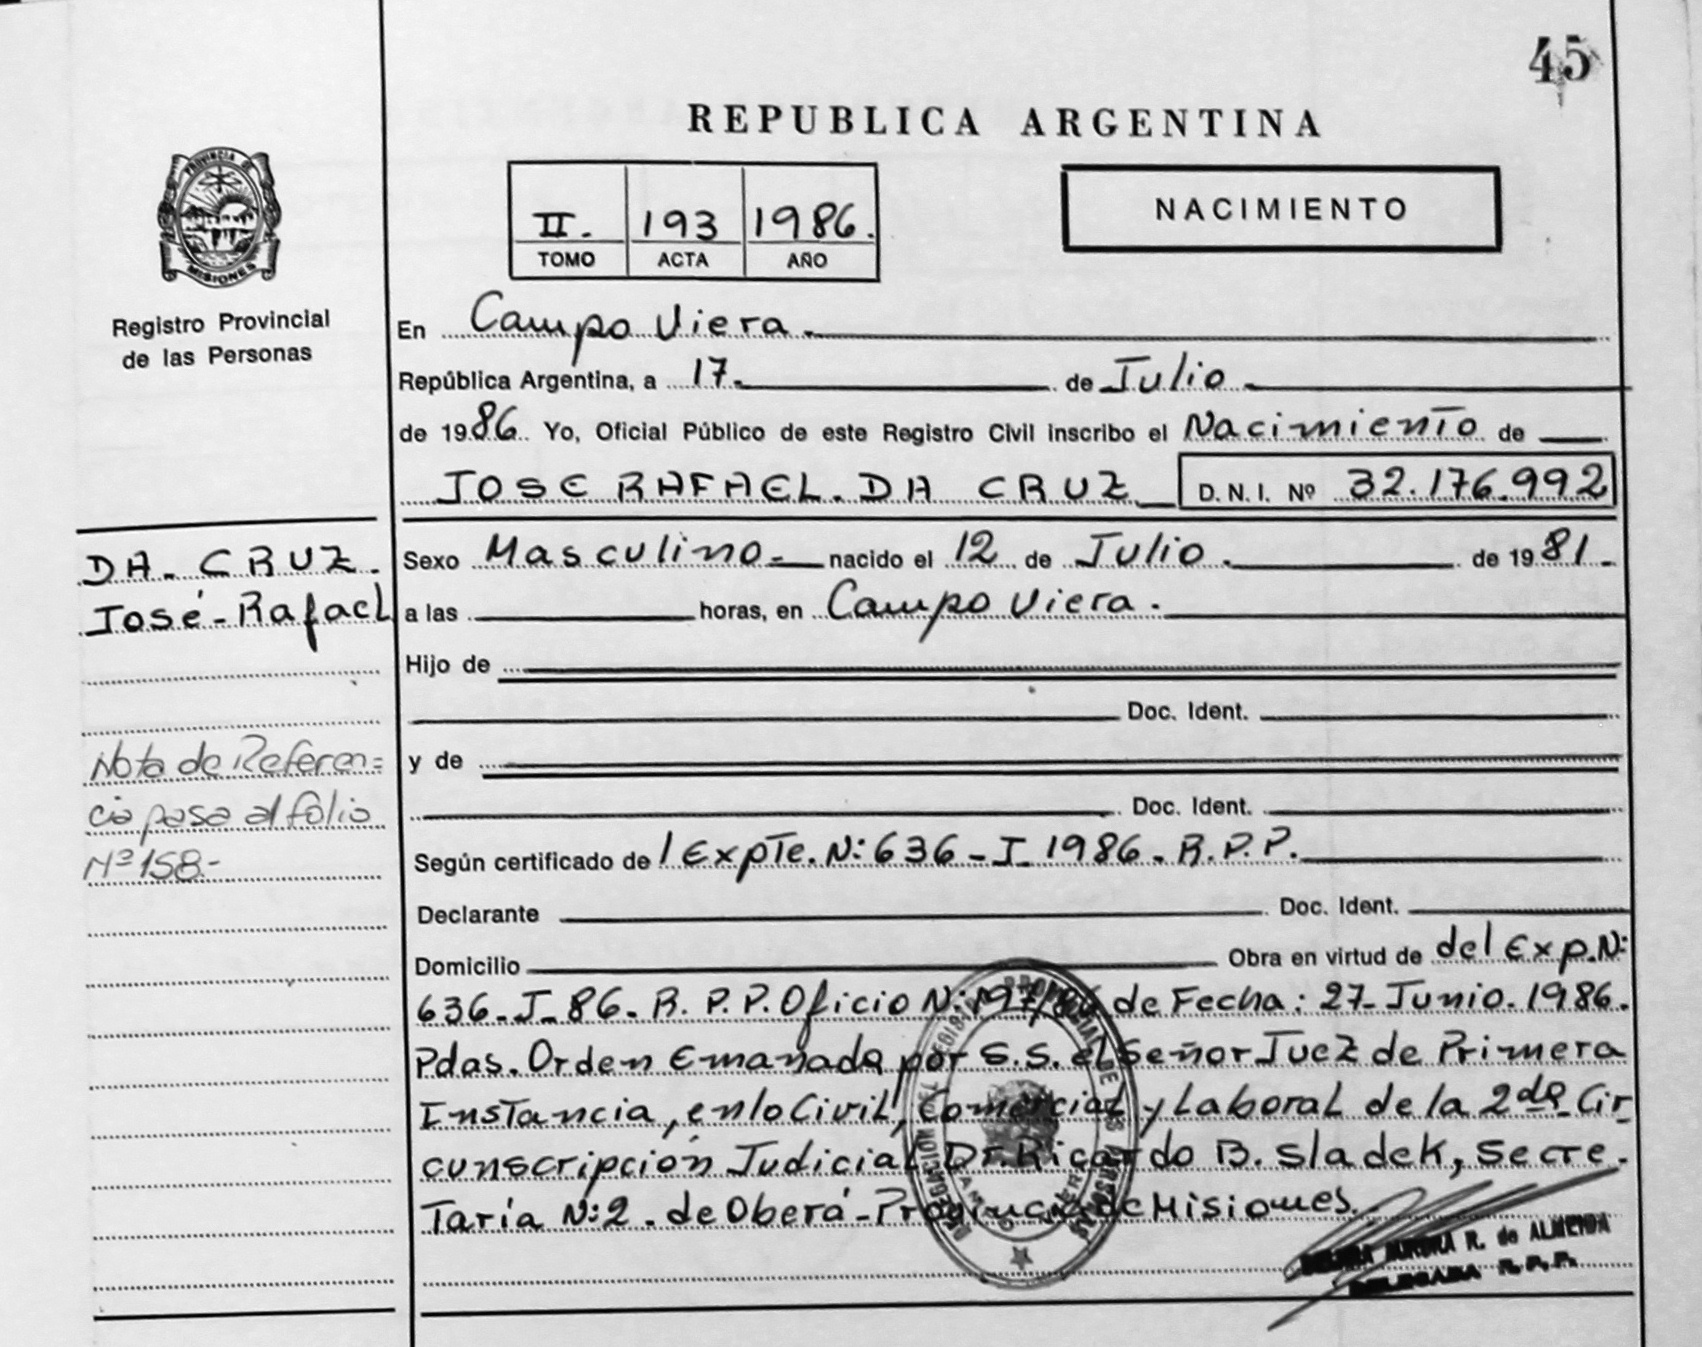 45
REPUBLICA ARGENTINA
PROVINCIA DE
MISIONES
Registro Provincial
de las Personas
II. 193 1986.
TOMO ACTA AÑO
NACIMIENTO
En Campo Viera.
República Argentina, a 17. de Julio
de 1986. Yo, Oficial Público de este Registro Civil inscribo el Nacimiento de
JOSE RAFAEL. DA CRUZ D.N.I. Nº 32.176.992
DA. CRUZ.
José-Rafael
Sexo Masculino. nacido el 12 de Julio. de 1981.
a las horas, en Campo Viera.
Hijo de
Doc. Ident.
y de
Doc. Ident.
Nota de Referen=
cia pasa al folio
Nº 158.-
Según certificado de / Expte. N: 636-I 1986. R.P.P.
Declarante Doc. Ident.
Domicilio Obra en virtud de del Exp. N:
636-I-86. R.P.P. Oficio N: 197/86 de Fecha: 27-Junio.1986.
Pdas. Orden Emanada por S.S. el Señor Juez de Primera
Instancia, en lo Civil, Comercial y Laboral de la 2da Cir
cunscripción Judicial Dr. Ricardo B. Sladek, Secre-
Taría N:2. de Oberá-Provincia de Misiones.
AURORA R. de ALMEIDA
DELEGADA R.P.P.